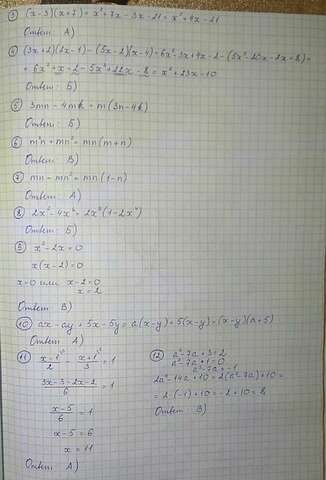 ③ (x-3)(x+7) = x²+7x-3x-21 = x²+4x-21
Ответ: А)
④ (3x+2)(2x-1)-(5x-2)(x-4) = 6x²-3x+4x-2-(5x²-20x-2x+8) =
= 6x²+x-2-5x²+22x-8 = x²+23x-10
Ответ: Б)
⑤ 3mn-4mk = m(3n-4k)
Ответ: Б)
⑥ m²n+mn² = mn(m+n)
Ответ: В)
⑦ mn-mn² = mn(1-n)
Ответ: А)
⑧
Ответ: Б)
⑨ x²-2x=0
x(x-2)=0
x=0 или x-2=0
x=2
Ответ: В)
⑩ ax-ay+5x-5y = a(x-y)+5(x-y) = (x-y)(a+5)
Ответ: А)
⑪ (x-1)/2 - (x+1)/3 = 1
(3x-3-2x-2)/6 = 1
(x-5)/6 = 1
x-5=6
x=11
Ответ: А)
⑫ a²-7a+3=2
a²-7a+1=0
a²-7a=-1
2a²-14a+10 = 2(a²-7a)+10 =
= 2·(-1)+10 = -2+10 = 8
Ответ: В)